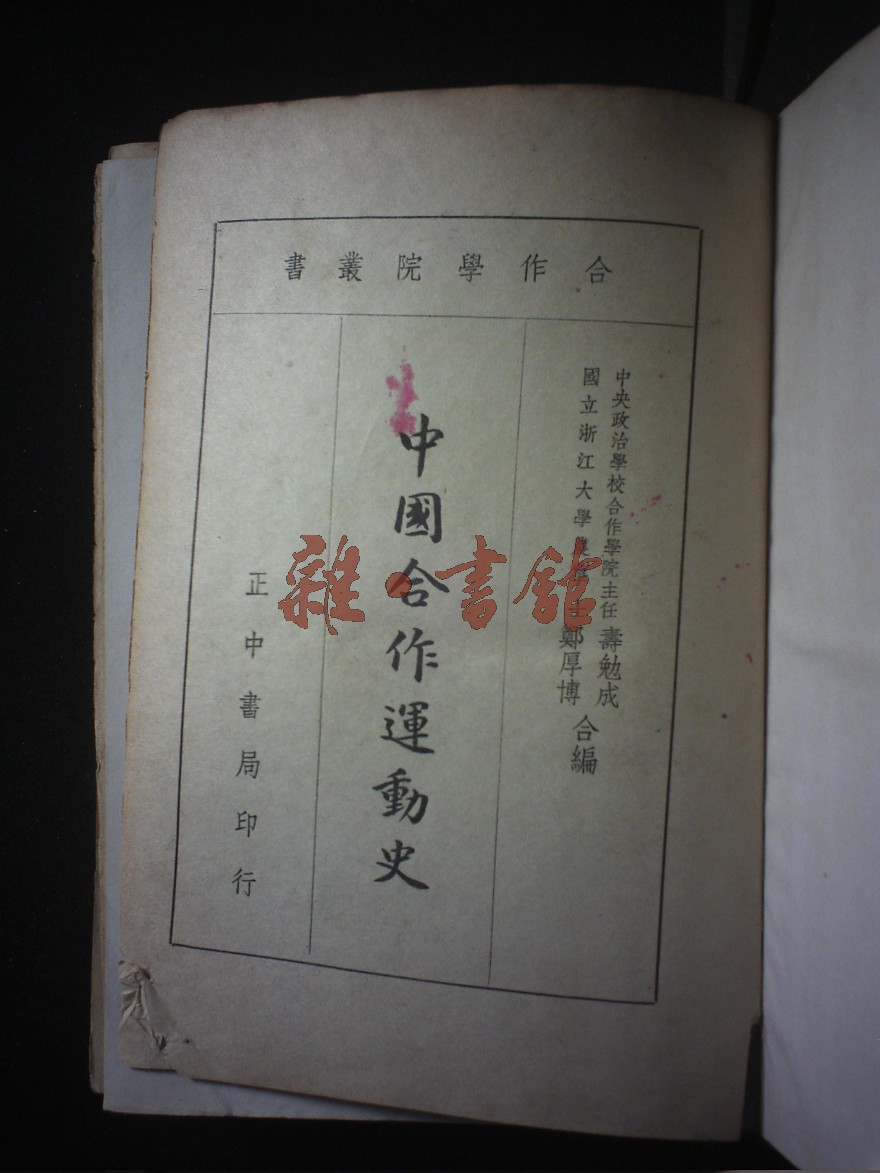 合作學院叢書
中央政治學校合作學院主任 壽勉成
國立浙江大學農 鄭厚博
合編
中國合作運動史
正中書局印行
雜·書館